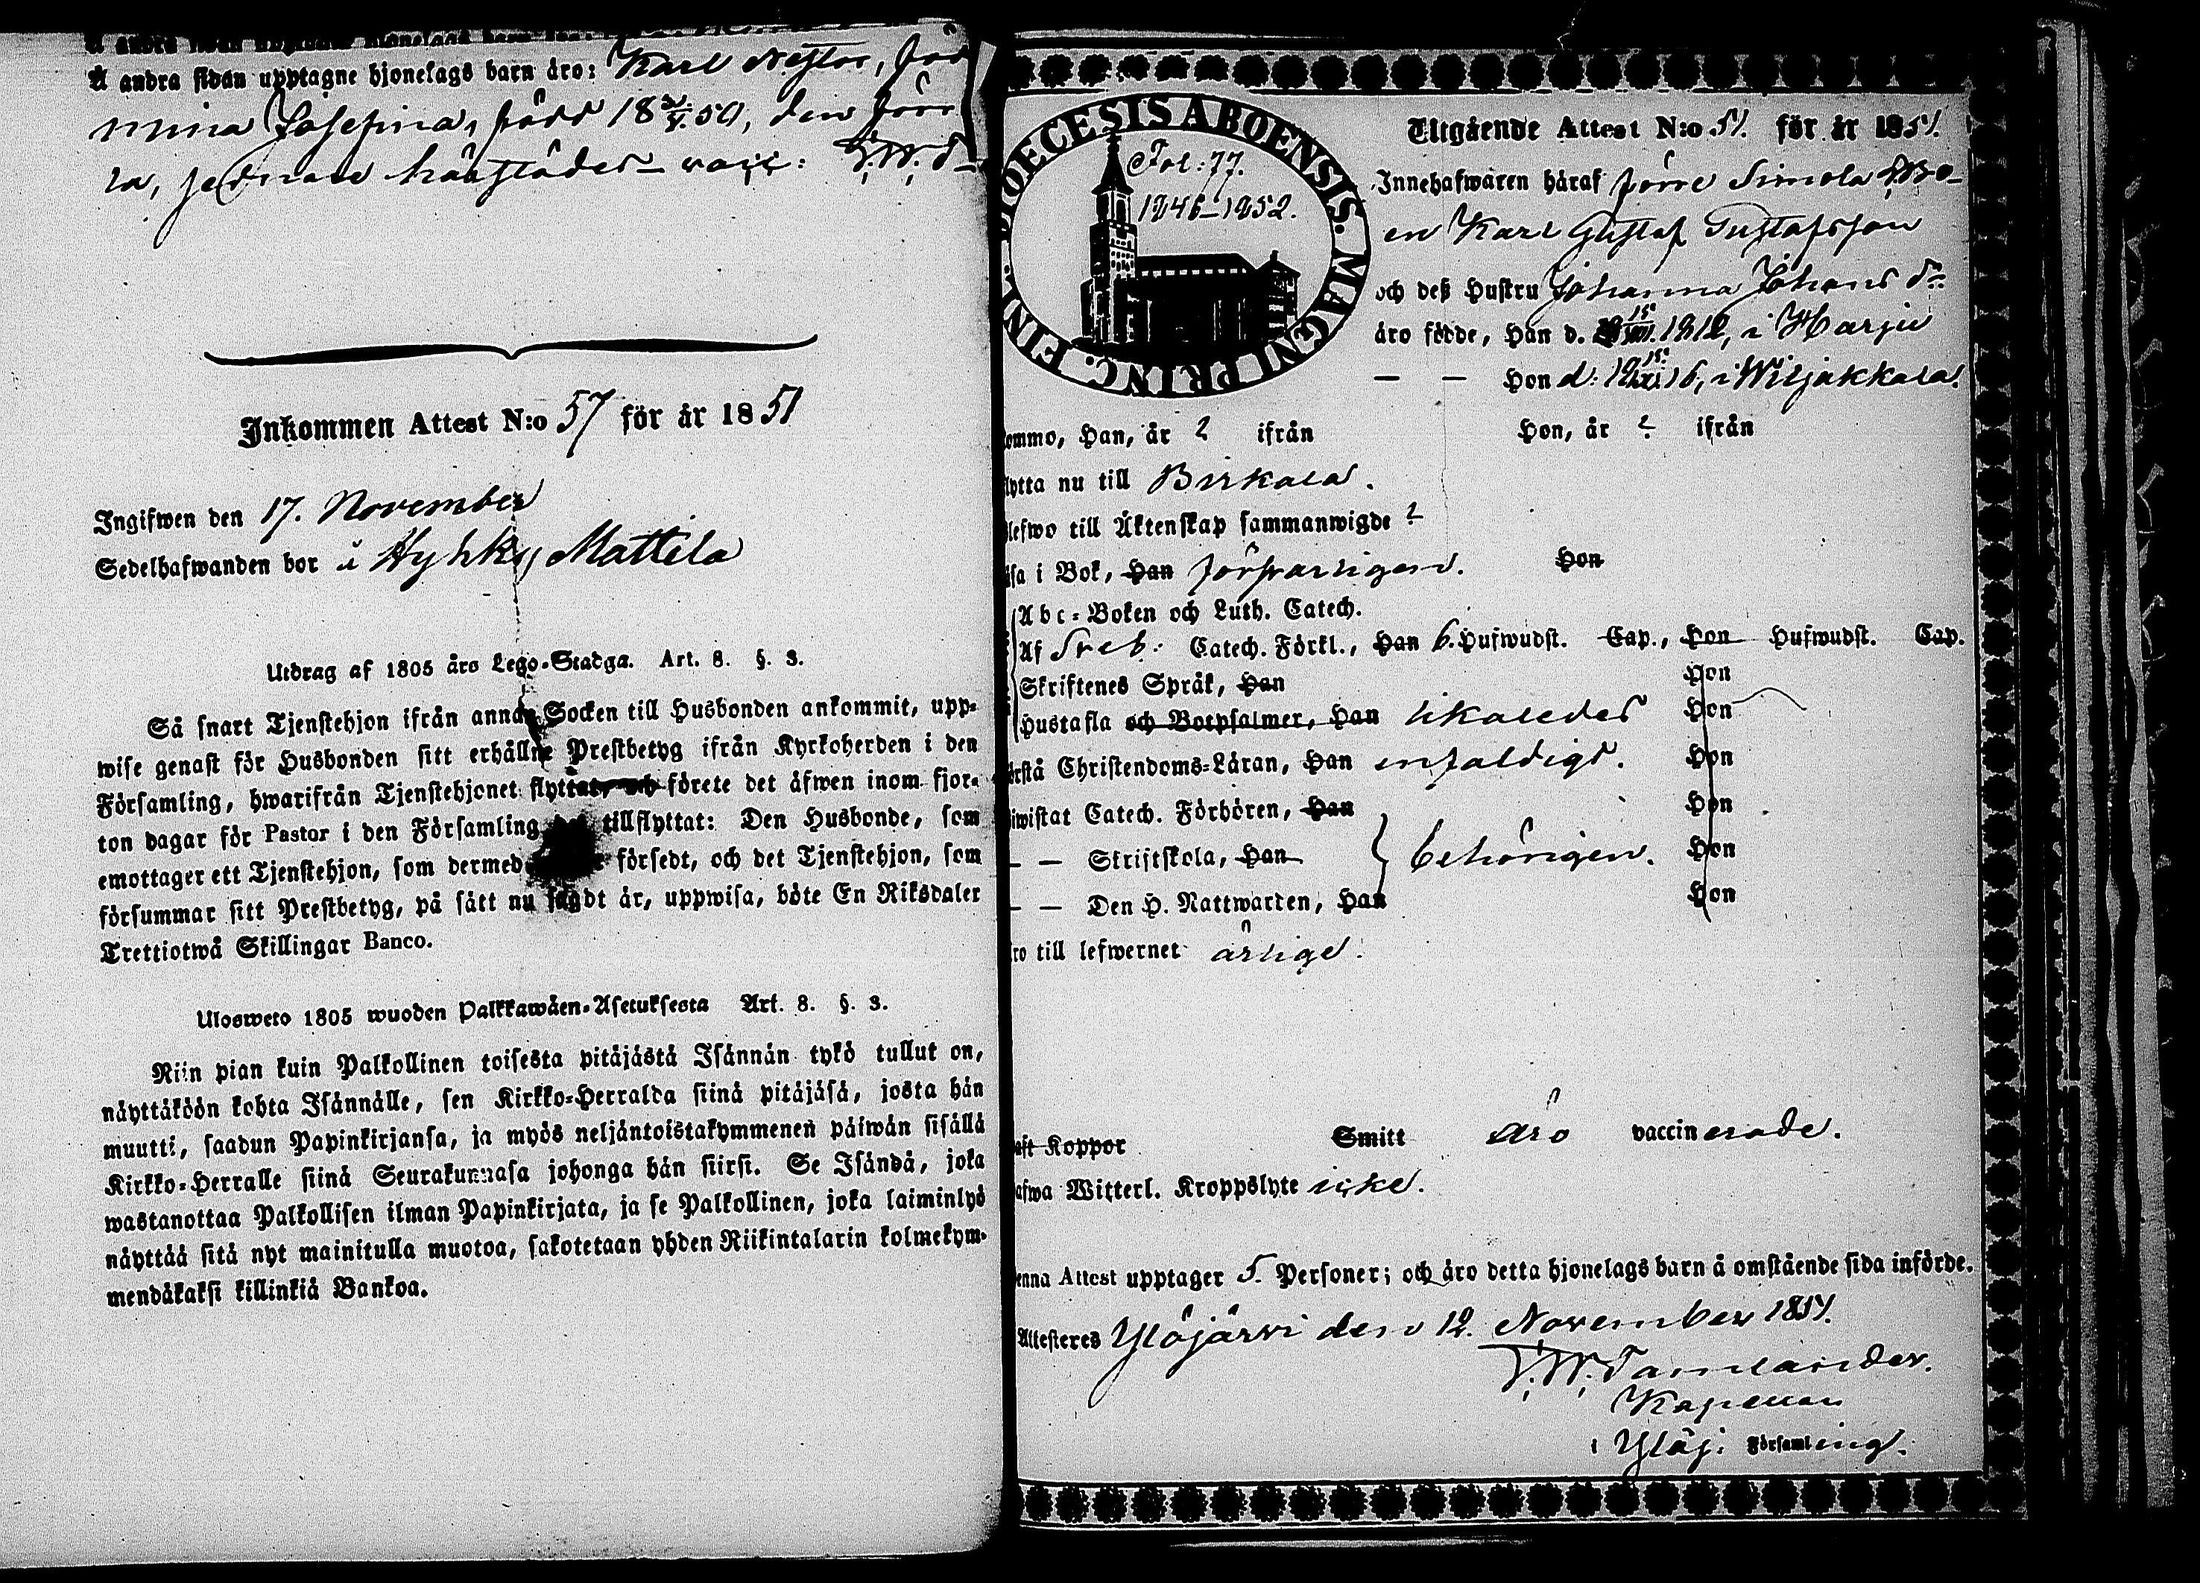 Å andra sidan upptagne hjonelags barn äro: Karl Nestor, föd
mina Josefina, född 18 50, den förr
la, sednare härstädes
Inkommen Attest N:o 57 för år 1851
Ingifwen den 17. November
Sedelhafwanden bor i Hyhky Mattila
Utdrag af 1805 års Lego-Stadga. Art. 8. §. 3.
Så snart Tjenstehjon ifrån annan Socken till Husbonden ankommit, upp-
wise genast för Husbonden sitt erhållne Prestbetyg ifrån Kyrkoherden i den
Församling, hwarifrån Tjenstehjonet flyttat, och förete det äfwen inom fjor-
ton dagar för Pastor i den Församling tillflyttat: Den Husbonde, som
emottager ett Tjenstehjon, som dermed försedt, och det Tjenstehjon, som
försummar sitt Prestbetyg, på sätt nu sagdt är, uppwisa, böte En Riksdaler
Trettiotwå Skillingar Banco.
Ulosweto 1805 wuoden Palkkawäen-Asetuksesta Art. 8. §. 3.
Niin pian kuin Palkollinen toisesta pitäjästä Isännän tykö tullut on,
näyttäköön kohta Isännälle, sen Kirkko-Herralda siinä pitäjäsä, josta hän
muutti, saadun Papinkirjansa, ja myös neljäntoistakymmenen päiwän sisällä
Kirkko-Herralle siinä Seurakunnasa johonga hän siirsi. Se Isändä, joka
wastanottaa Palkollisen ilman Papinkirjata, ja se Palkollinen, joka laiminlyö
näyttää sitä nyt mainitulla muotoa, sakotetaan yhden Riikintalarin kolmekym-
mendäkaksi killinkiä Bankoa.
DIOECESIS ABOENSIS. MAGNI PRINC. FINL.
Fol: 77.
1846–1852.
Utgående Attest N:o 51. för år 1851.
Innehafwaren häraf förre Simola
en Karl Gustaf Gustafsson
och deß Hustru Johanna Johans dr.
äro födde, Han d. 15 1812, i Harju
— — Hon d: 15 16, i Wiljakkala.
ommo, Han, år ? ifrån Hon, år ? ifrån
lytta nu till Birkala.
lefwo till Äktenskap sammanwigde ?
äsa i Bok, Han försvarligen. Hon
Abc-Boken och Luth. Catech.
Af Sveb: Catech. Förkl., Han 6. Hufwudst. Cap., Hon Hufwudst. Cap.
Skriftenes Språk, Han Hon
Hustafla och Botpsalmer, Han likaledes Hon
örstå Christendoms-Läran, Han enfaldigt. Hon
iwistat Catech. Förhören, Han Hon
— — Skriftskola, Han behörigen. Hon
— — Den H. Nattwarden, Han Hon
ro till lefwernet ärlige.
aft Koppor Smitt äro vaccinerade.
afwa Witterl. Kroppslyte icke.
enna Attest upptager 5. Personer; och äro detta hjonelags barn å omstående sida införde.
Attesteres Ylöjärvi den 12. November 1851.
F. W. Tamlander.
Kapellan
i Ylöj. Församling.